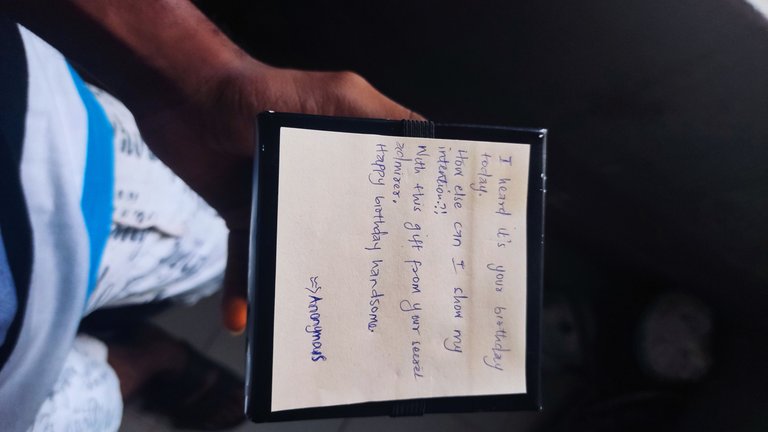 I heard it's your birthday
today.
How else can I show my
intention?!
With this gift from your secret
admirer.
Happy birthday handsome.
=> Anonymous